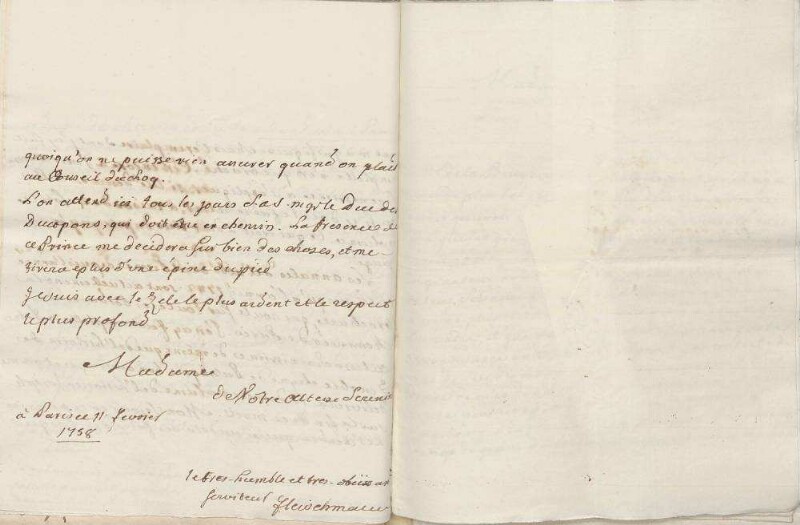 quoiqu'on ne puisse rien assurer quand on plai
au Conseil du choq.
L'on attend ici tous les jours S. A. S. mgr. le Duc de
Duxponts, qui doit être en chemin. La presence de
ce Prince me decidera sur bien des choses, et me
tirera plus d'une épine du pié.
Je suis avec le zele le plus ardent et le respect
le plus profond
Madame
de Votre Altesse Sereniss
à Paris ce 11 fevrier
1758
le tres-humble et tres-obëissant
serviteur Fleischmann